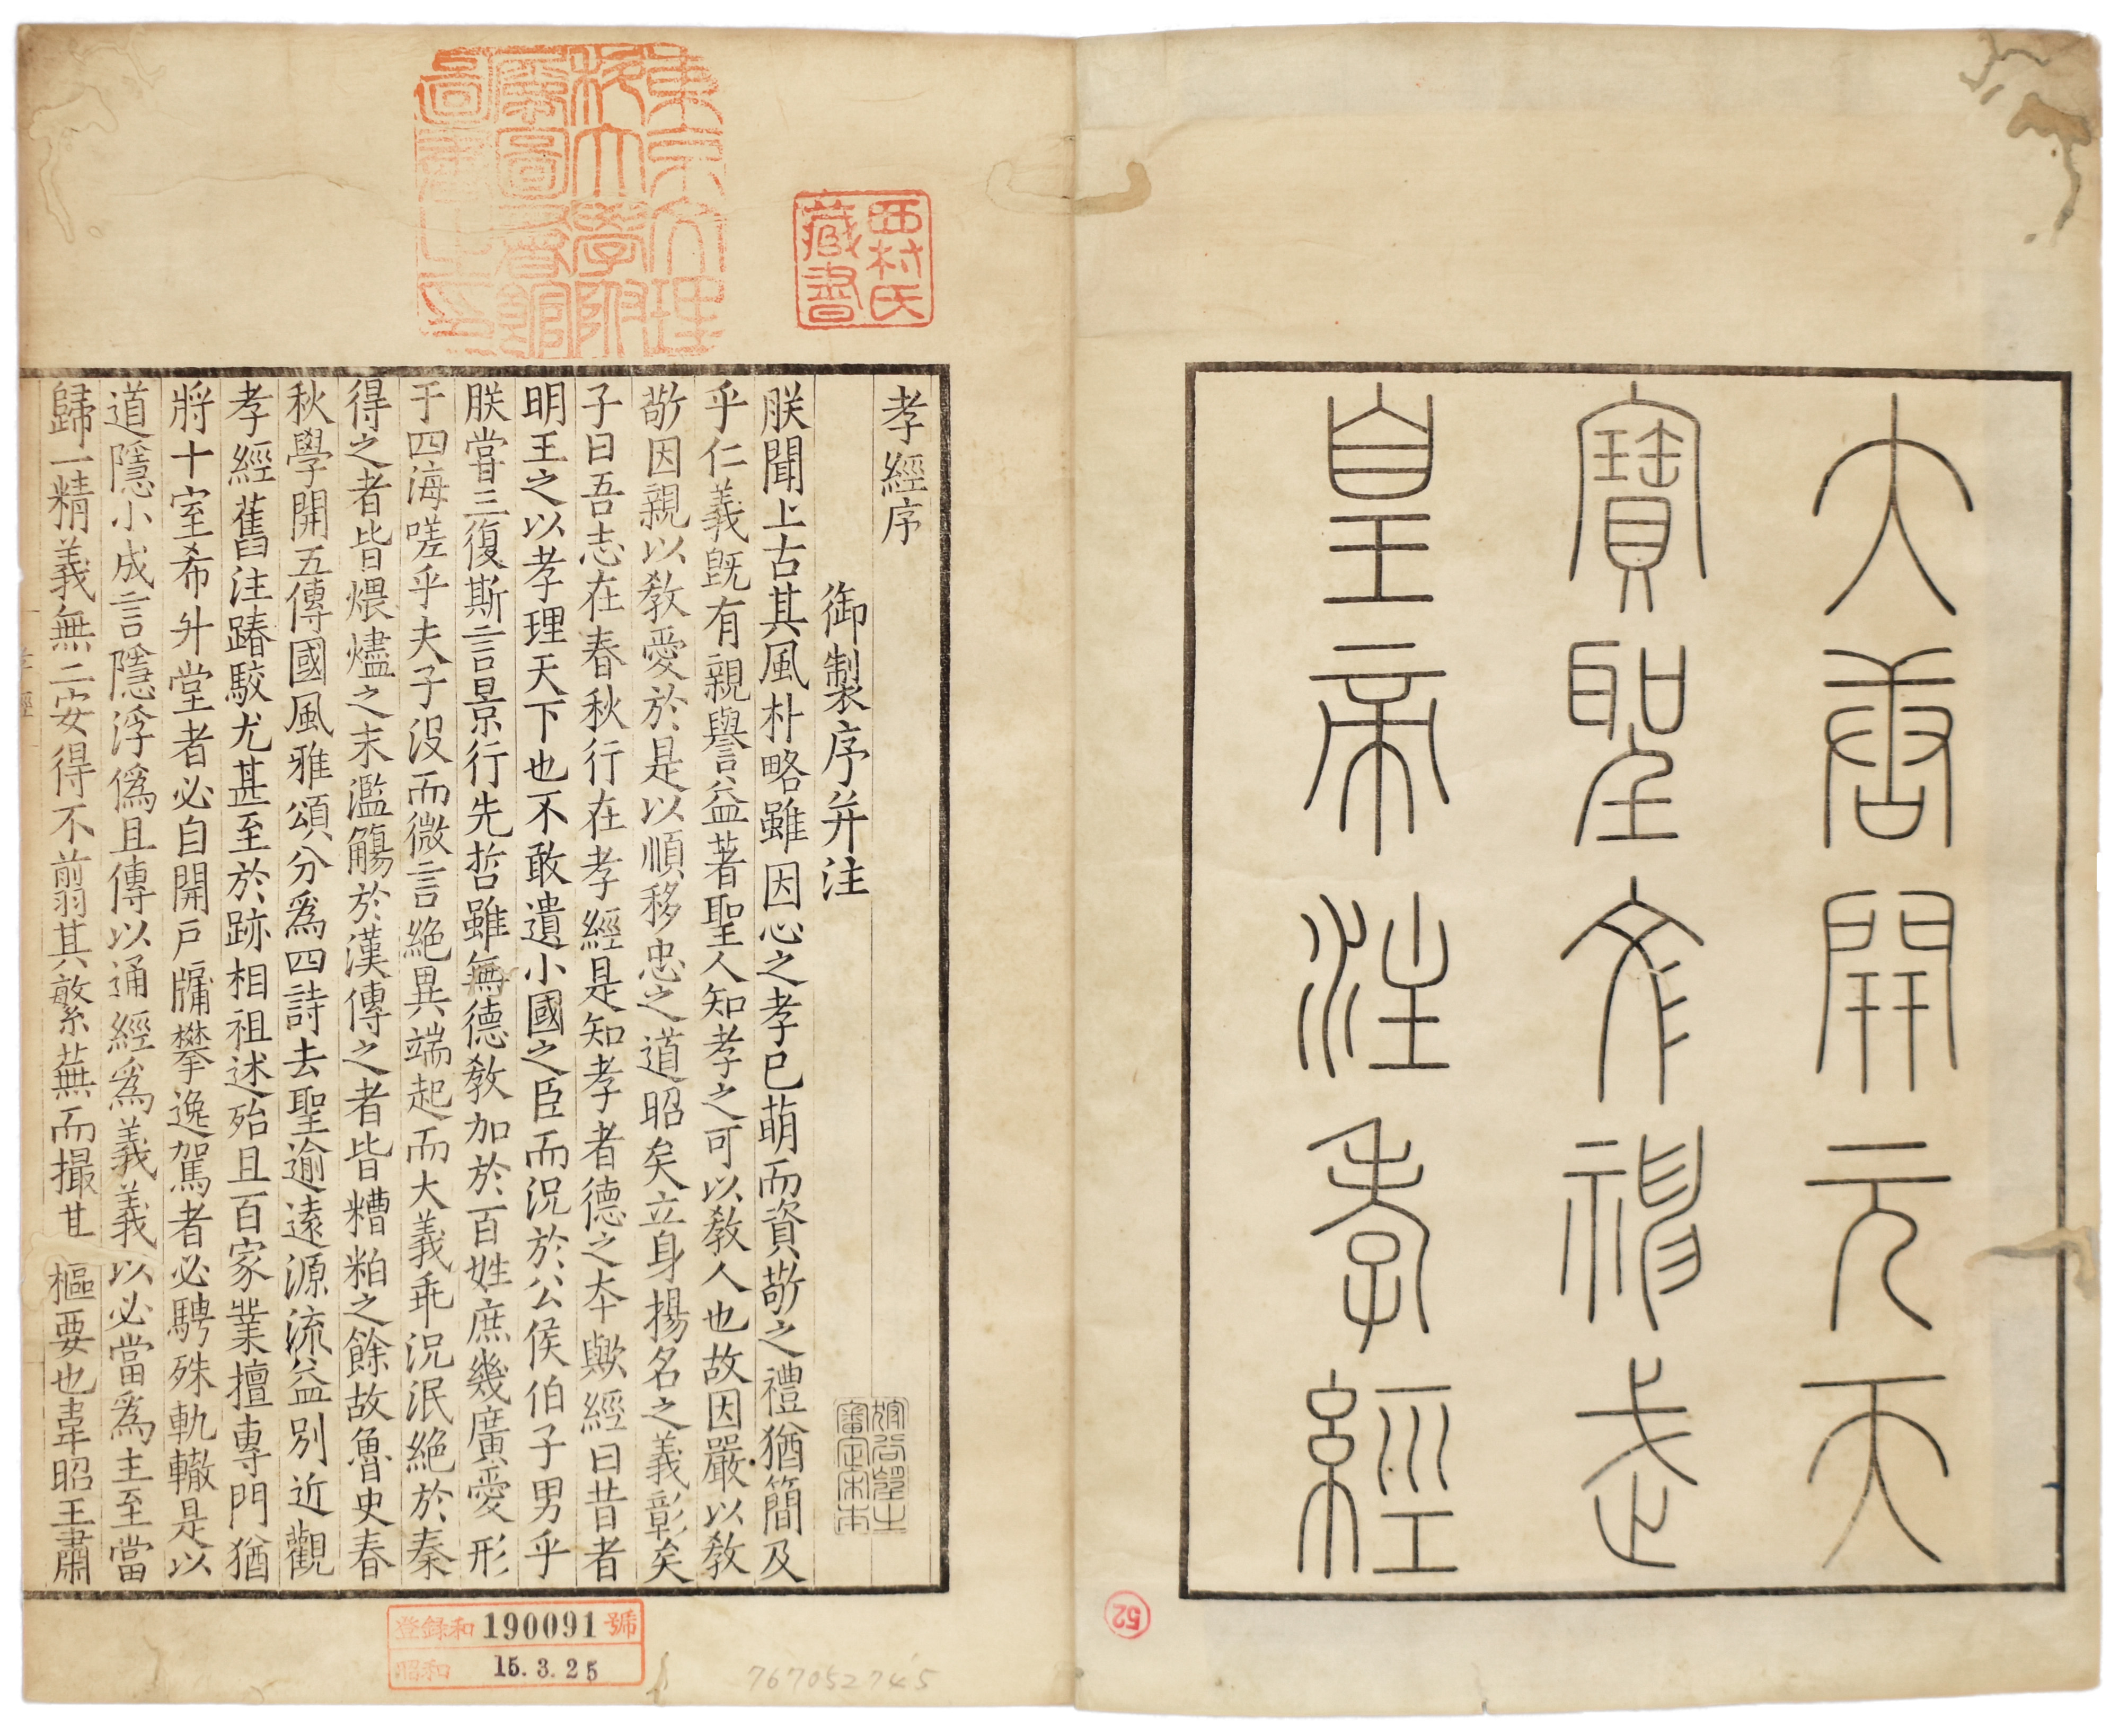 大唐開元天
寶聖文神武
皇帝注孝經
52
西村氏
藏書
東京文理
科大學附
屬圖書館
圖書之印
孝經序
御製序并注
朕聞上古其風朴略雖因心之孝已萌而資敬之禮猶簡及
乎仁義旣有親譽益著聖人知孝之可以敎人也故因嚴以敎
敬因親以敎愛於是以順移忠之道昭矣立身揚名之義彰矣
子曰吾志在春秋行在孝經是知孝者德之本歟經曰昔者
明王之以孝理天下也不敢遺小國之臣而況於公侯伯子男乎
朕嘗三復斯言景行先哲雖無德敎加於百姓庶幾廣愛形
于四海嗟乎夫子沒而微言絶異端起而大義乖況泯絶於秦
得之者皆煨燼之末濫觴於漢傳之者皆糟粕之餘故魯史春
秋學開五傳國風雅頌分爲四詩去聖逾遠源流益別近觀
孝經舊注踳駮尤甚至於跡相祖述殆且百家業擅專門猶
將十室希升堂者必自開戶牖攀逸駕者必騁殊軌轍是以
道隱小成言隱浮僞且傳以通經爲義義以必當爲主至當
歸一精義無二安得不翦其繁蕪而撮其樞要也韋昭王肅
審定宋本
登録和190091號
昭和 15.3.25
767052745